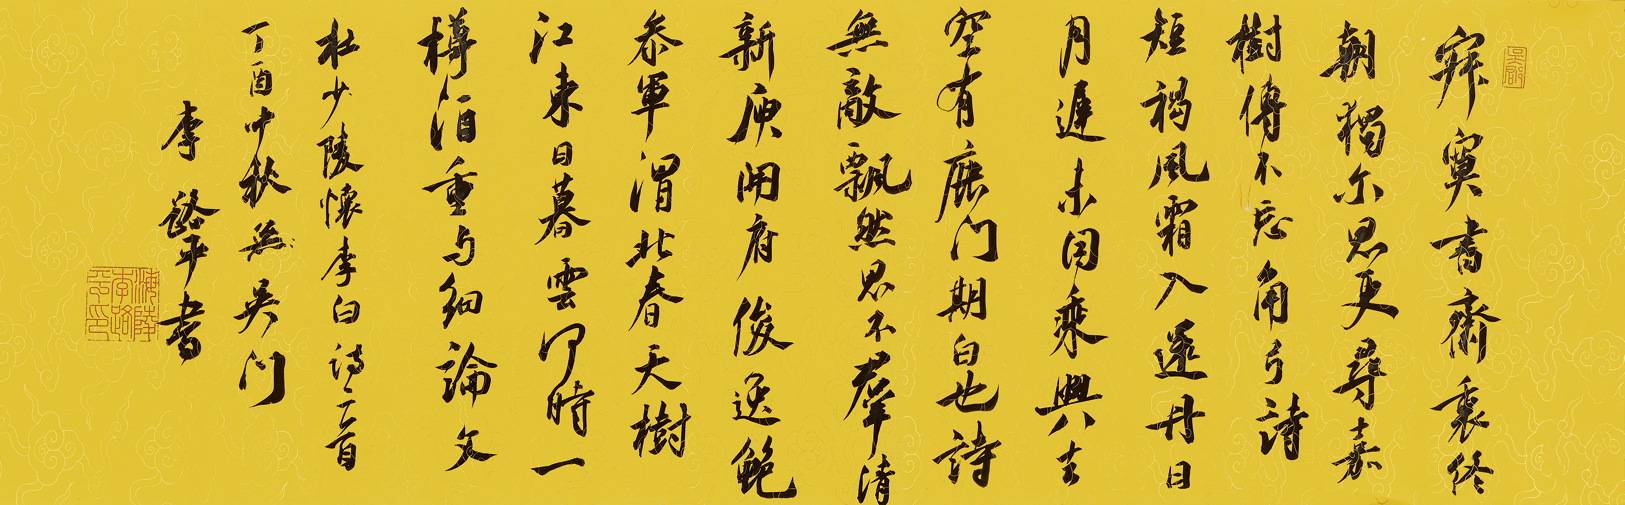 寂寞書齋裏終
朝獨尔思更尋嘉
樹傳不忘角弓詩
短褐風霜入還丹日
月遲未因乘興去
空有鹿門期白也詩
無敵飄然思不羣清
新庾開府俊逸鮑
参軍渭北春天樹
江東日暮雲何時一
樽酒重与細論文
杜少陵懷李白诗二首
丁酉中秋吴門
李路平書
海陵李路平印